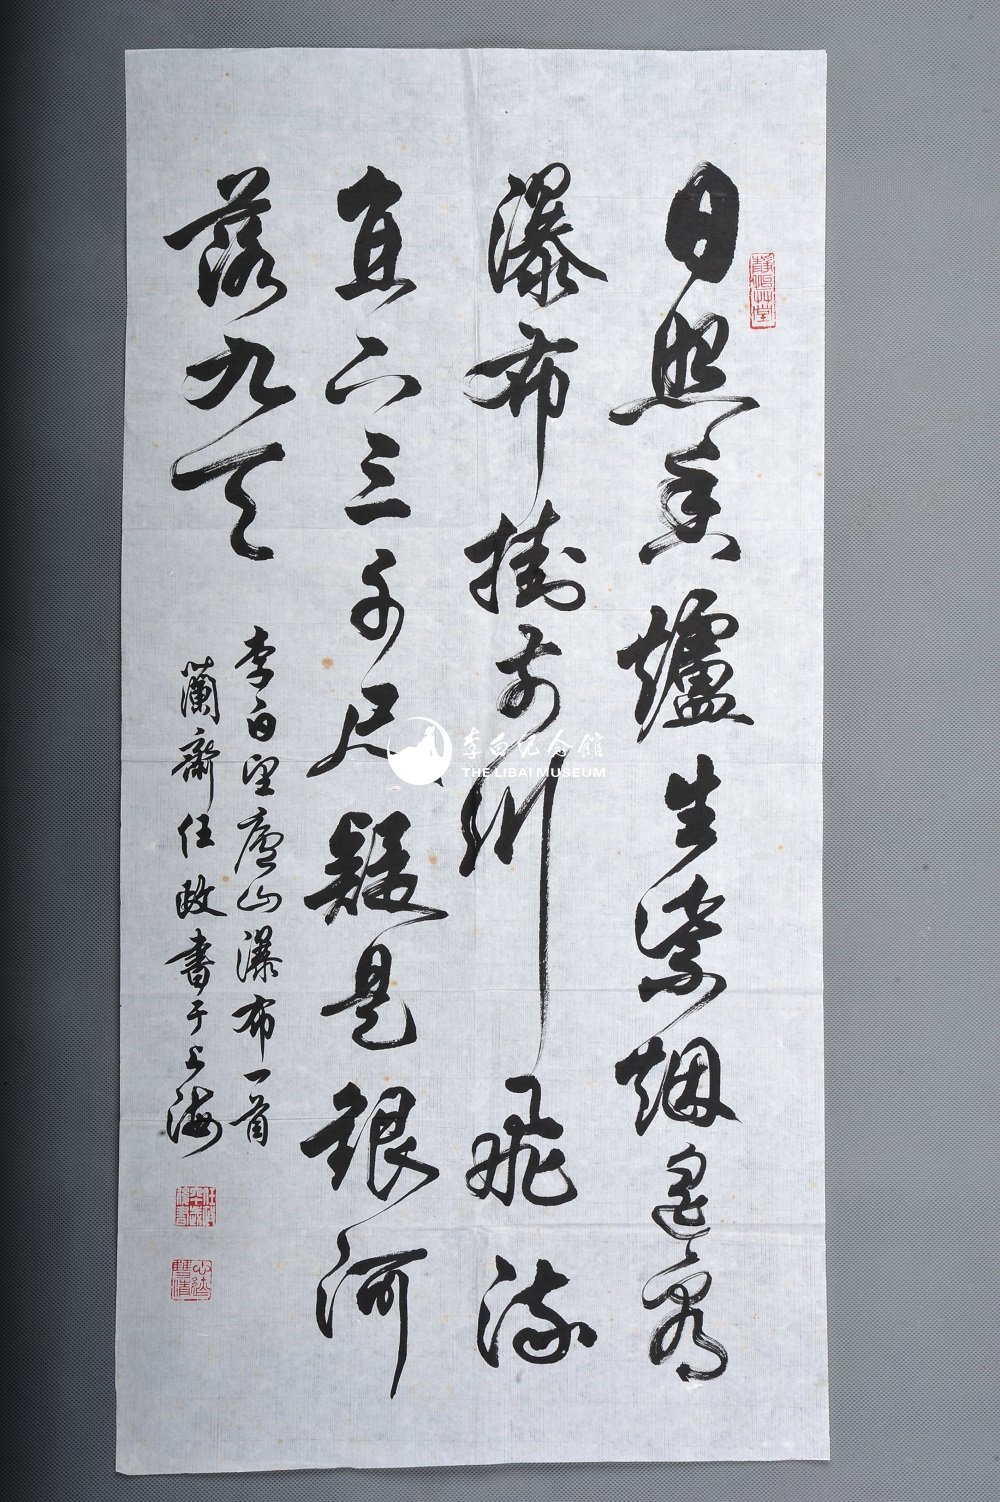 日照香爐生紫烟遥看
瀑布掛前川飛流
直下三千尺疑是銀河
落九天
李白望廬山瀑布一首
蘭齋任政書于上海
李白纪念館
THE LIBAI MUSEUM